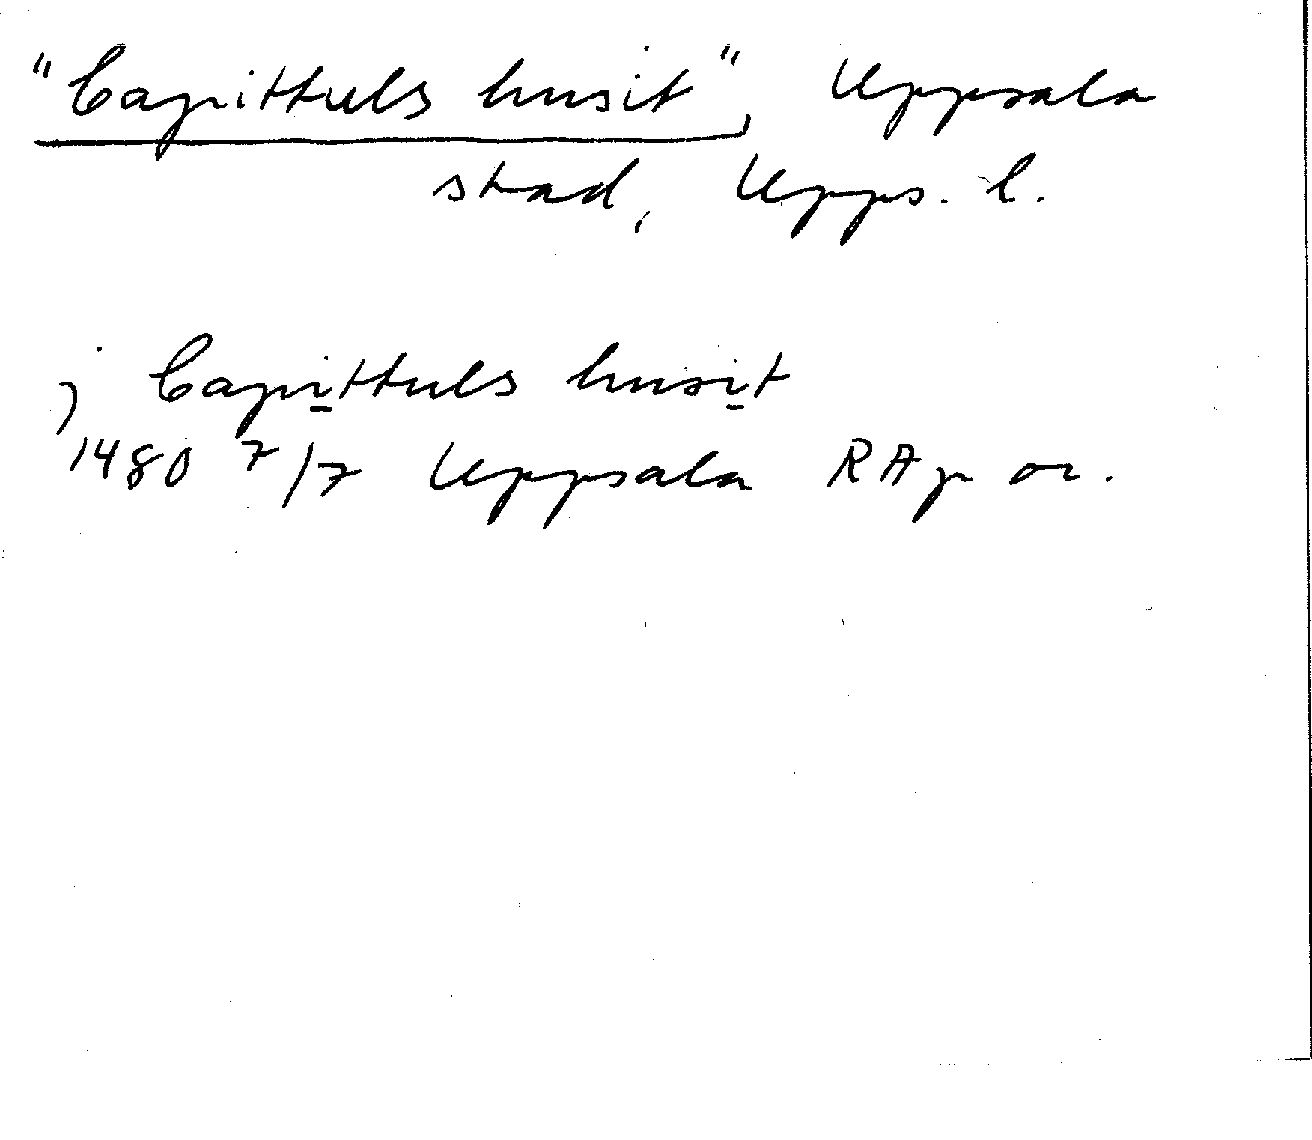 "Capittuls husit", Uppsala
stad, Upps. l.
j Capittuls husit
1480 7/7 Uppsala RAp or.